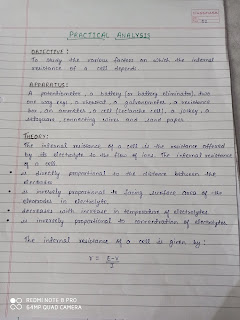 PRACTICAL ANALYSIS
OBJECTIVE :
To study the various factors on which the internal
resistance of a cell depends.
APPARATUS :
A potentiometer, a battery (or battery eliminator), two
one way keys, a rheostat, a galvanometer, a resistance
box, an ammeter, a cell (Leclanche cell), a jockey, a
setsquare, connecting wires and sand paper.
THEORY :
The internal resistance of a cell is the resistance offered
by its electrolyte to the flow of ions. The internal resistance
of a cell
• is directly proportional to the distance between the
electrodes
• is inversly proportional to facing surface area of the
electrodes in electrolyte.
• decreases with increase in temperature of electrolytes
• is inversely proportional to concentration of electrolytes
The internal resistance of a cell is given by :
r = E-V
I
REDMI NOTE 8 PRO
64MP QUAD CAMERA